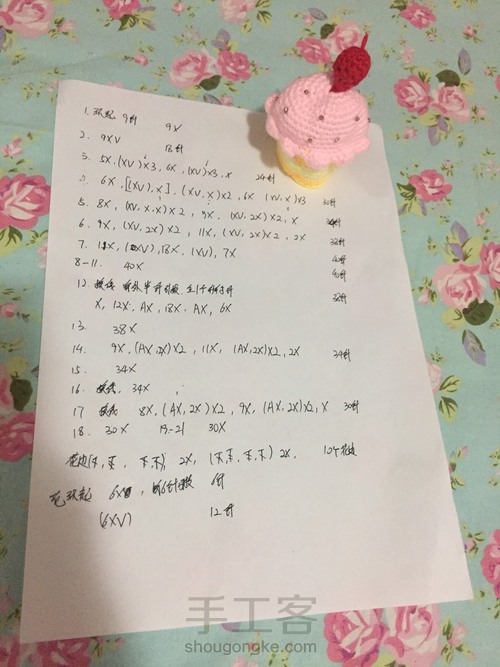 1. 环起 9针 9X
2. 9XV 18针
3. 5X,(XV)X3, 6X, (XV)X3, X 24针
6X, [(XV), X], (XV, X)X2, 6X (XV, X)X3 30针
5. 8X, (XV, X, X)X2, 9X, (XV, 2X)X2, X
6. 9X, (XV, 2X)X2, 11X, (XV, 2X)X2, 2X 38针
7. 18X, (XV), 7X 40针
8-11. 40X 40针
12. 换线
X, 12X, AX, 18X, AX, 6X 38针
13. 38X
14. 9X, (AX, 2X)X2, 11X, (AX, 2X)X2, 2X 34针
15. 34X
16. 换线, 34X
17 换线 8X, (AX, 2X)X2, 9X, (AX, 2X)X2, X 30针
18. 30X 19-21 30X
花边 2X, 2X, 10个花边
环起 6X 6针
(6XV) 12针
手工客
shougongke.com